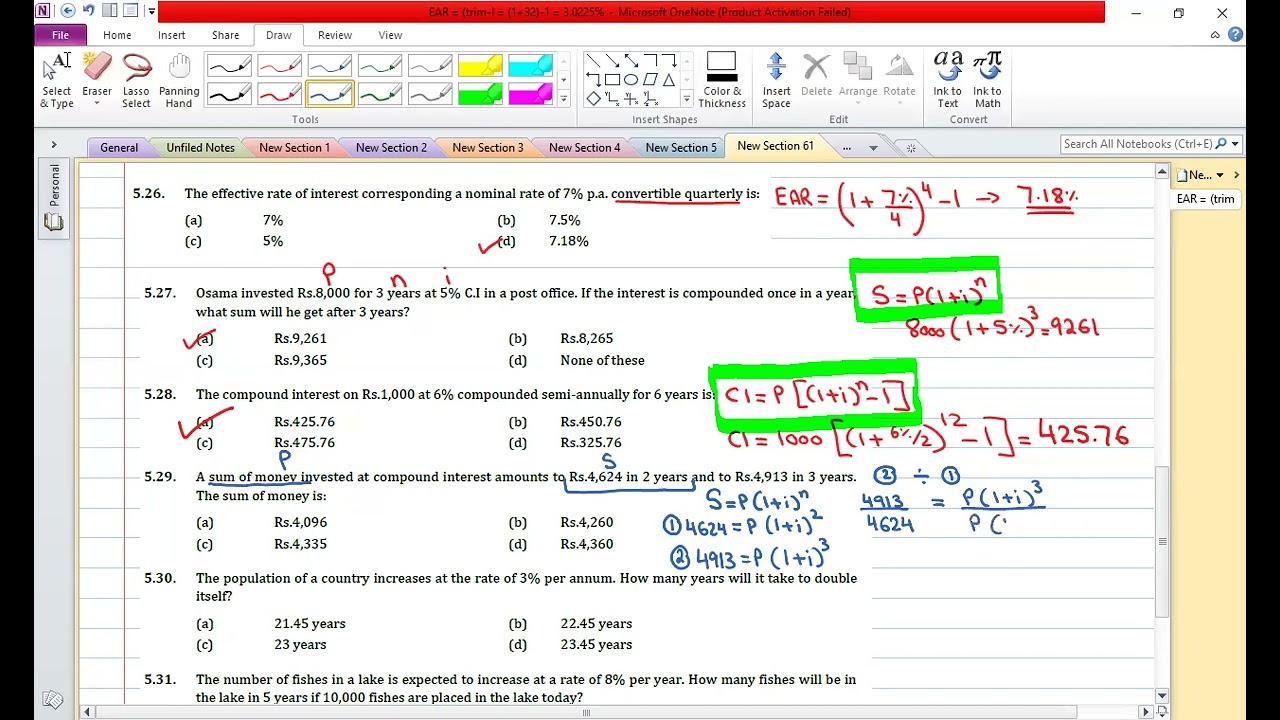 EAR = (trim-I = (1+32)-1 = 3.0225% - Microsoft OneNote (Product Activation Failed)
File Home Insert Share Draw Review View
Select & Type Eraser Lasso Select Panning Hand Color & Thickness Insert Space Delete Arrange Rotate Ink to Text Ink to Math
Tools Insert Shapes Edit Convert
General Unfiled Notes New Section 1 New Section 2 New Section 3 New Section 4 New Section 5 New Section 61 ... Search All Notebooks (Ctrl+E)
Personal
Ne...
EAR = (trim
5.26. The effective rate of interest corresponding a nominal rate of 7% p.a. convertible quarterly is: EAR = (1 + 7%/4)^4 - 1 → 7.18%
(a) 7% (b) 7.5%
(c) 5% (d) 7.18%
P n i
5.27. Osama invested Rs.8,000 for 3 years at 5% C.I in a post office. If the interest is compounded once in a year, S = P(1+i)^n
what sum will he get after 3 years?
8000 (1+5%)^3 = 9261
(a) Rs.9,261 (b) Rs.8,265
(c) Rs.9,365 (d) None of these
5.28. The compound interest on Rs.1,000 at 6% compounded semi-annually for 6 years is: CI = P [(1+i)^n - 1]
(a) Rs.425.76 (b) Rs.450.76
CI = 1000 [(1 + 6%/2)^12 - 1] = 425.76
(c) Rs.475.76 (d) Rs.325.76
P S
5.29. A sum of money invested at compound interest amounts to Rs.4,624 in 2 years and to Rs.4,913 in 3 years. ② ÷ ①
The sum of money is:
S = P(1+i)^n
4913/4624 = P(1+i)^3 / P (
(a) Rs.4,096 (b) Rs.4,260
① 4624 = P(1+i)^2
(c) Rs.4,335 (d) Rs.4,360
② 4913 = P(1+i)^3
5.30. The population of a country increases at the rate of 3% per annum. How many years will it take to double
itself?
(a) 21.45 years (b) 22.45 years
(c) 23 years (d) 23.45 years
5.31. The number of fishes in a lake is expected to increase at a rate of 8% per year. How many fishes will be in
the lake in 5 years if 10,000 fishes are placed in the lake today?